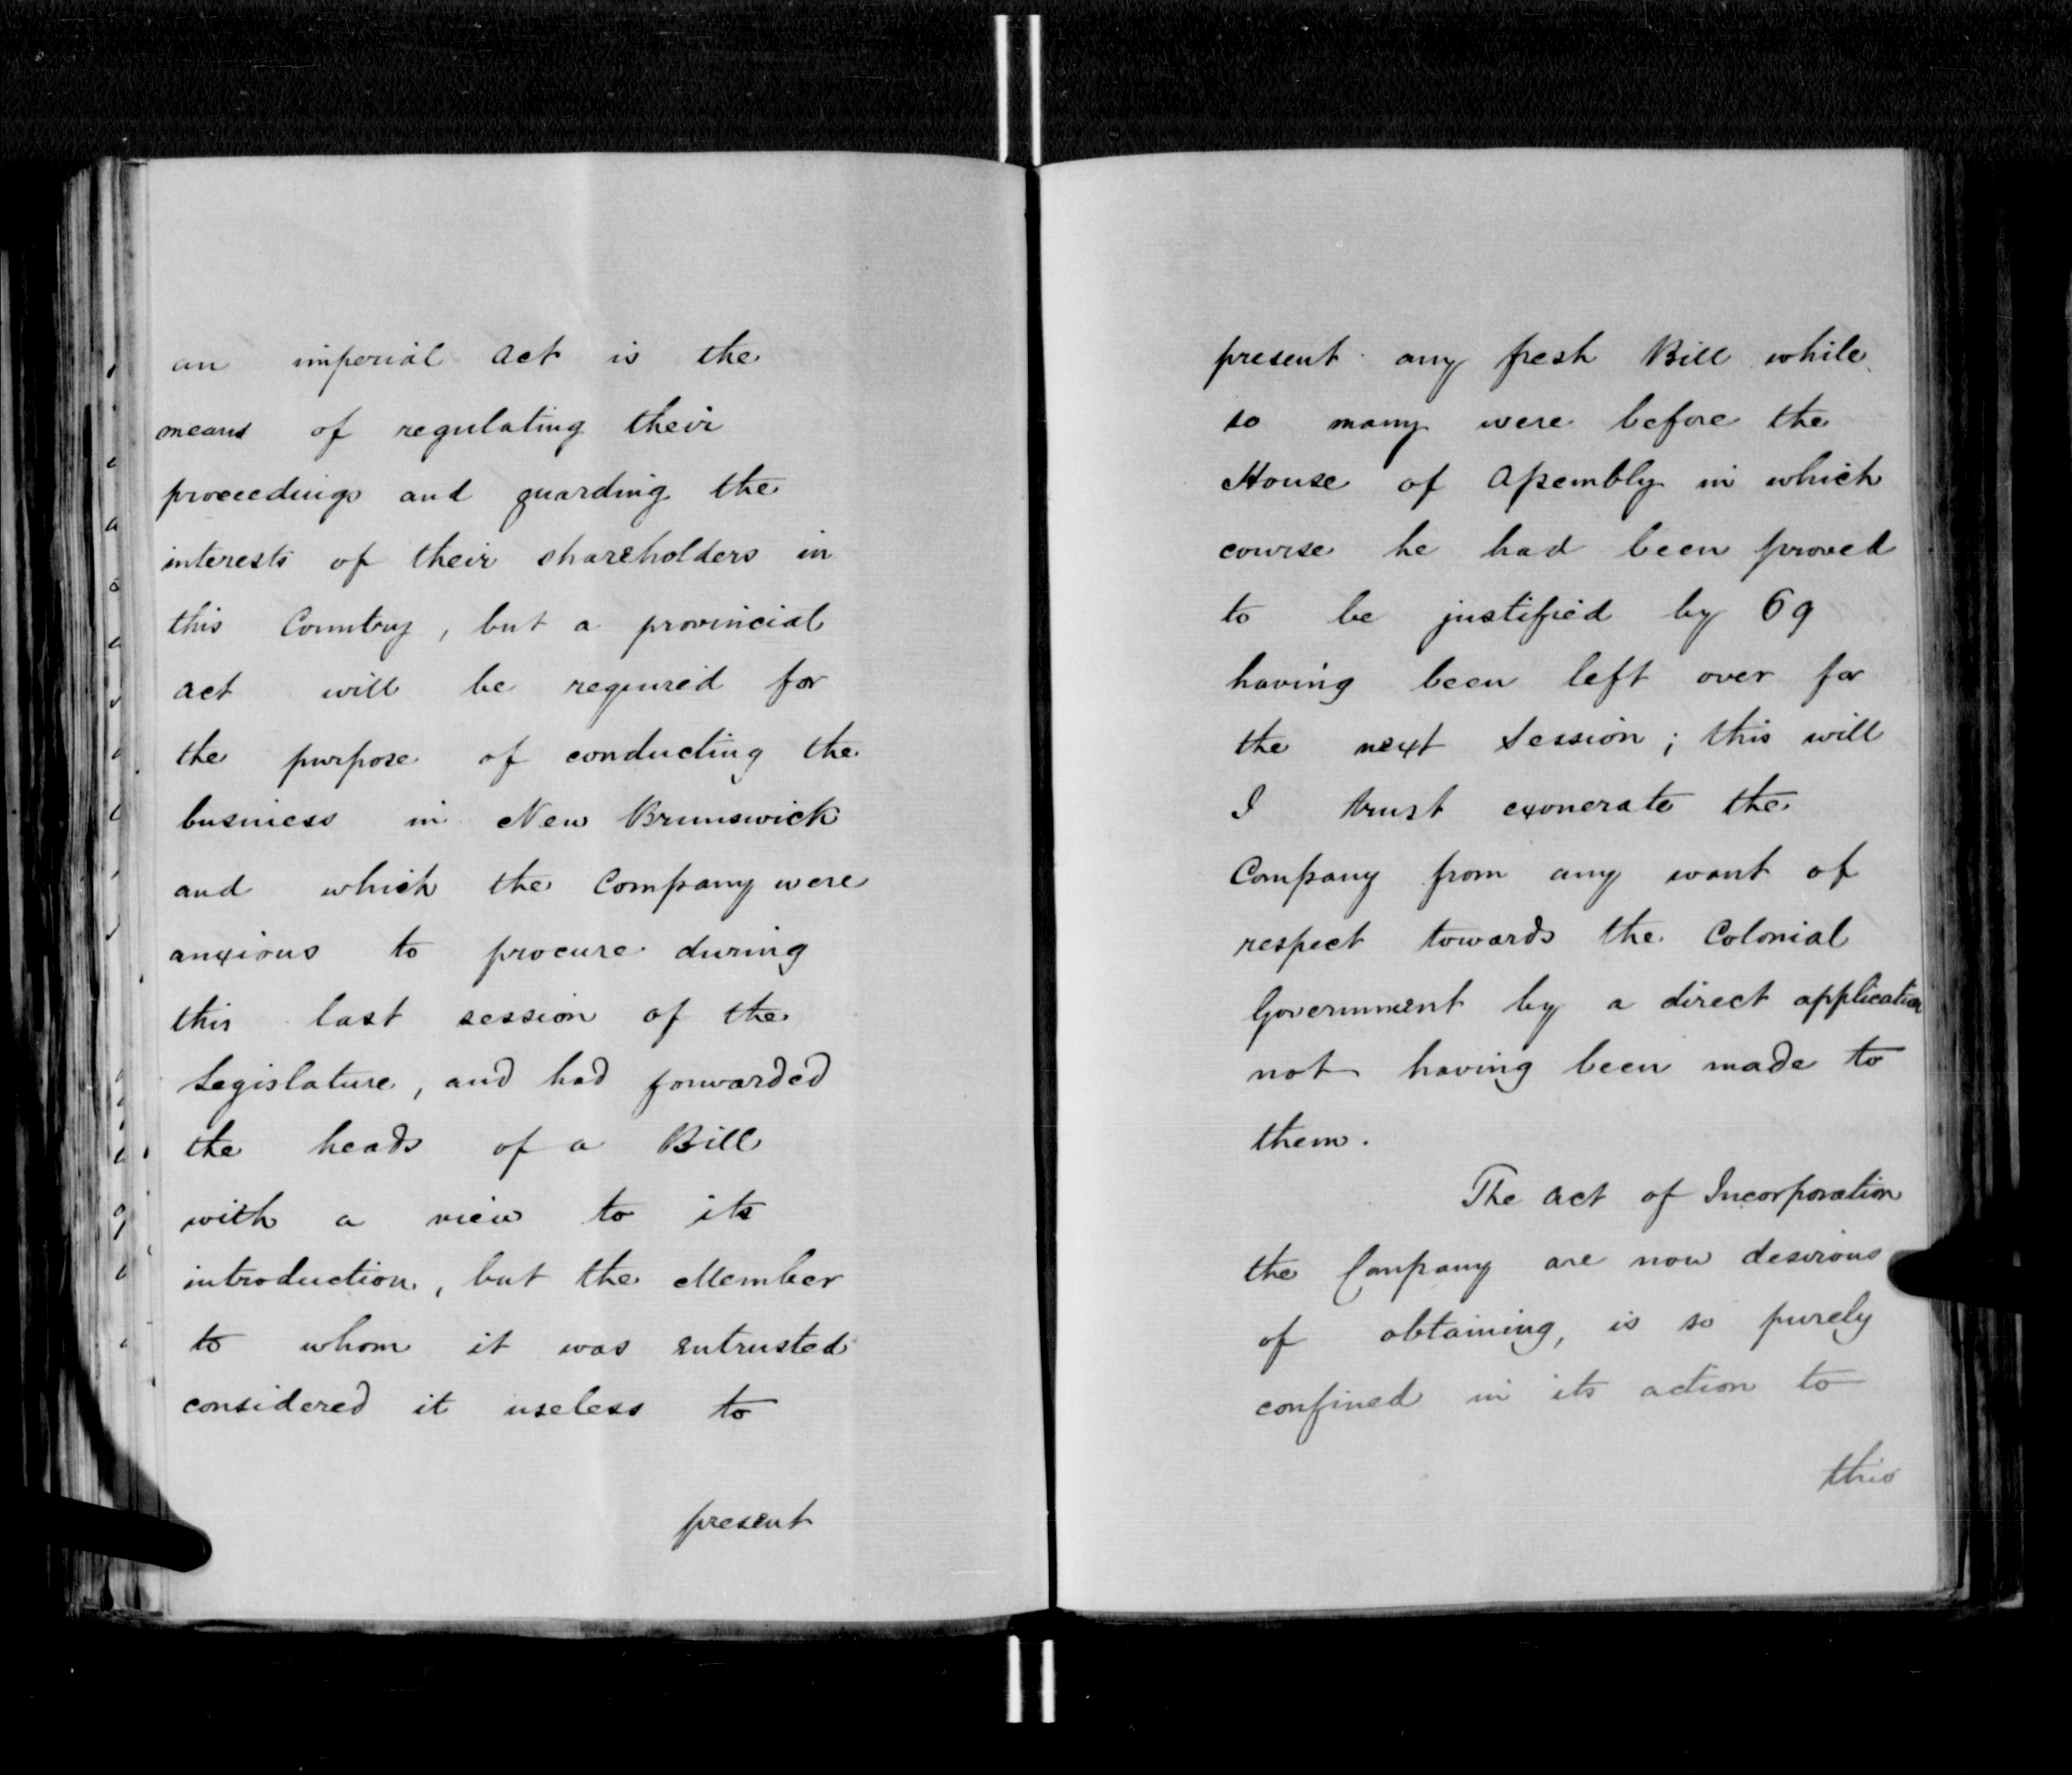 an imperial Act is the
means of regulating their
proceedings and guarding the
interests of their shareholders in
this Country, but a provincial
act will be required for
the purpose of conducting the
business in New Brunswick
and which the Company were
anxious to procure during
this last session of the
Legislature, and had forwarded
the heads of a Bill
with a view to its
introduction, but the Member
to whom it was entrusted
considered it useless to
present
present any fresh Bill while
so many were before the
House of Assembly in which
course he had been proved
to be justified by 69
having been left over for
the next Session; this will
I trust exonerate the
Company from any want of
respect towards the Colonial
Government by a direct application
not having been made to
them.
The Act of Incorporation
the Company are now desirous
of obtaining, is so purely
confined in its action to
this